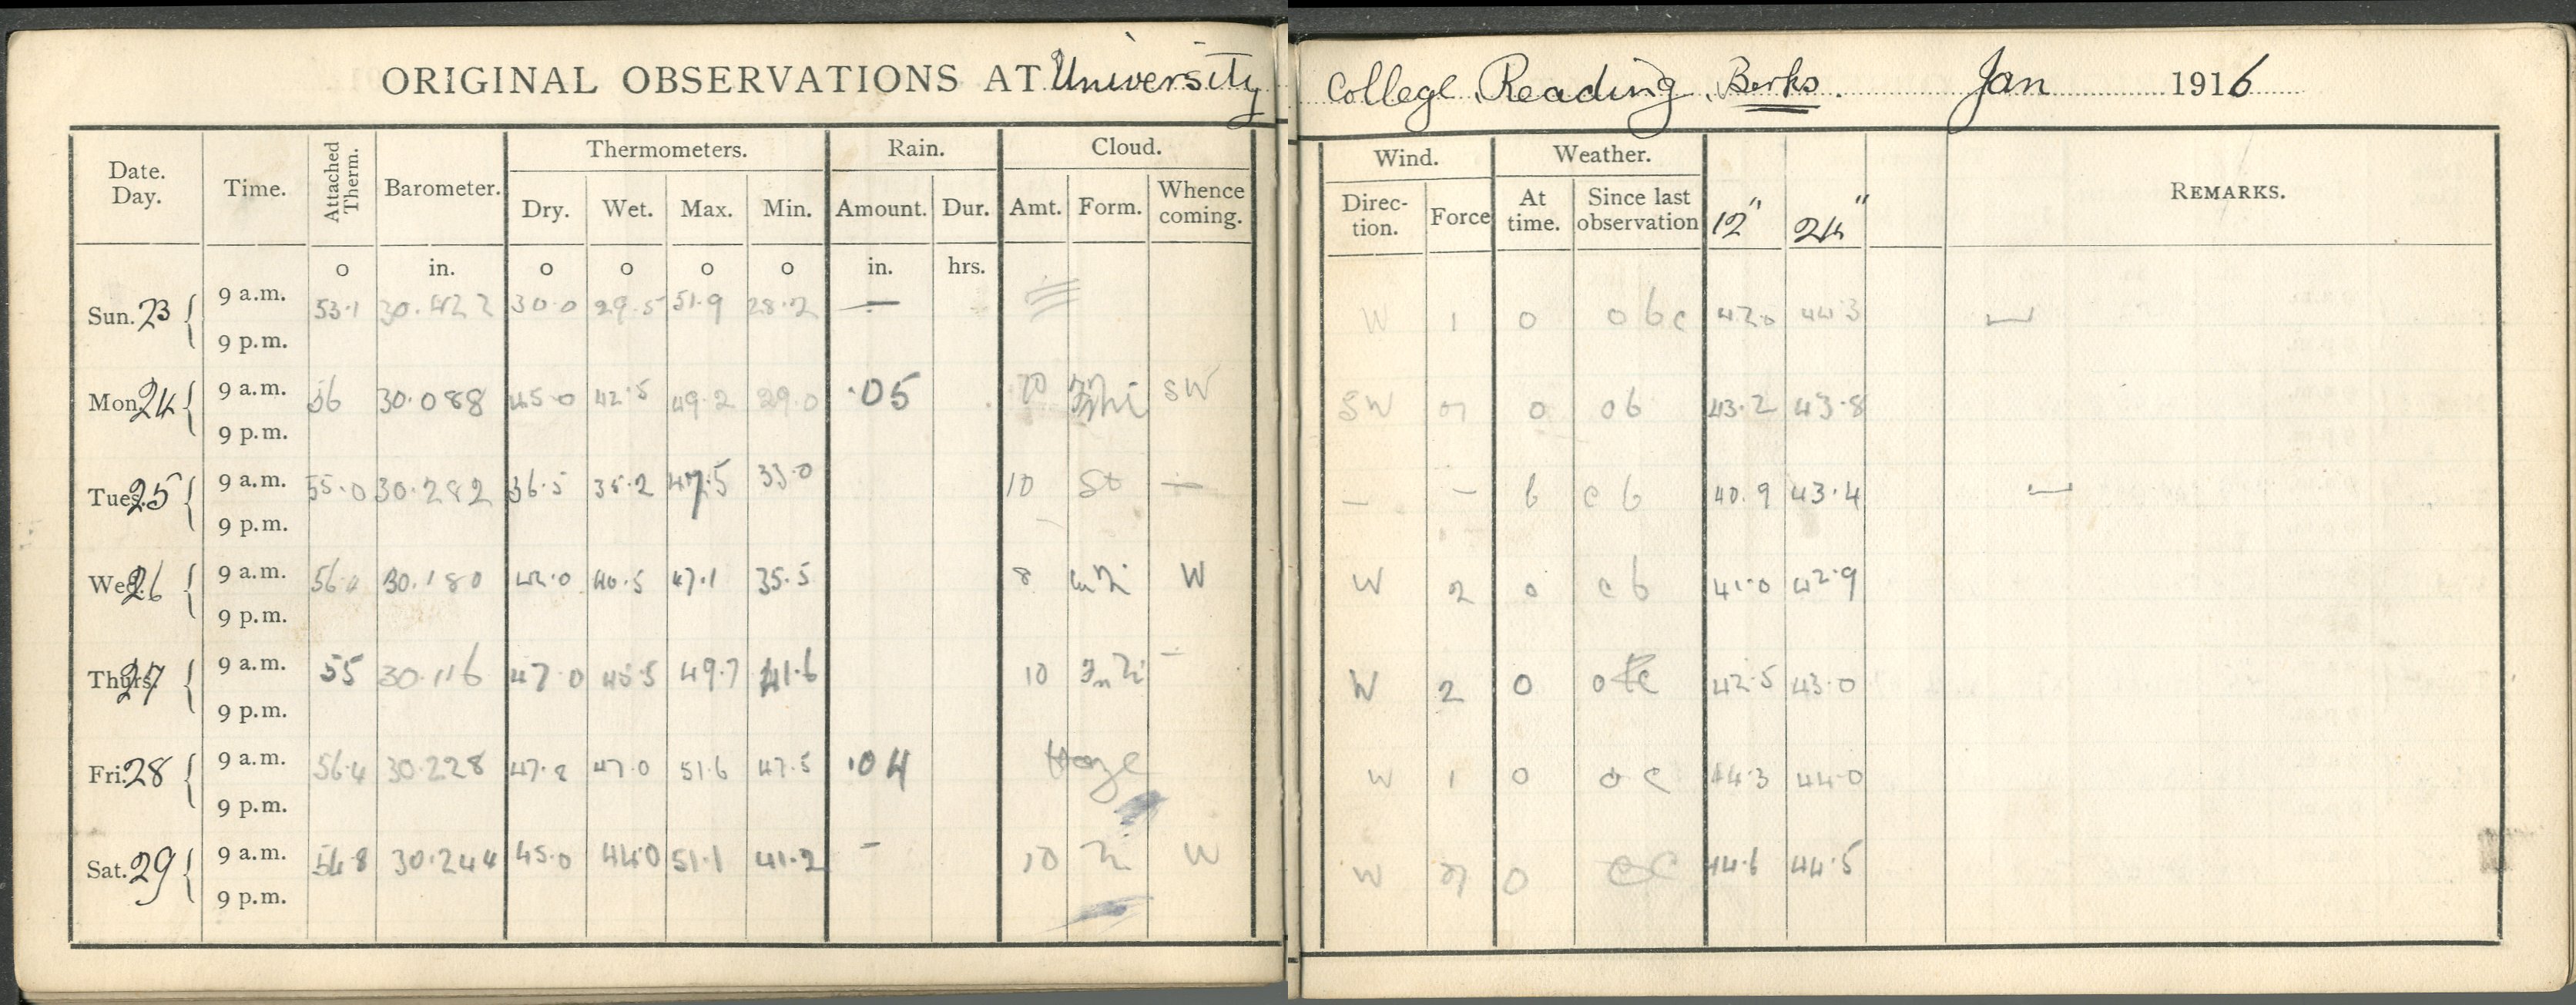 ORIGINAL OBSERVATIONS AT University College Reading, Berks. Jan 1916
Date. Day. Time. Attached Therm. Barometer. Thermometers. Rain. Cloud. Wind. Weather. 12" 24" REMARKS.
Dry. Wet. Max. Min. Amount. Dur. Amt. Form. Whence coming. Direction. Force At time. Since last observation
o in. o o o o in. hrs.
Sun. 23 9 a.m. 53.1 30.422 30.0 29.5 51.9 28.2 — W 1 o o b c 42.0 44.3
9 p.m.
Mon. 24 9 a.m. 56 30.088 45.0 42.5 49.2 29.0 .05 10 SW SW o o b 43.2 43.8
9 p.m.
Tues. 25 9 a.m. 55.0 30.282 36.5 35.2 47.5 33.0 10 St — — — b c b 40.9 43.4
9 p.m.
Wed. 26 9 a.m. 56.0 30.180 42.0 40.5 47.1 35.5 8 W W 2 o c b 41.0 42.9
9 p.m.
Thurs. 27 9 a.m. 55 30.116 47.0 45.5 49.7 41.6 10 — W 2 o o 42.5 43.0
9 p.m.
Fri. 28 9 a.m. 56.4 30.228 47.8 47.0 51.6 47.5 .04 Haze W 1 o o c 44.3 44.0
9 p.m.
Sat. 29 9 a.m. 54.8 30.244 45.0 44.0 51.1 41.2 – 10 W W o c 44.6 44.5
9 p.m.